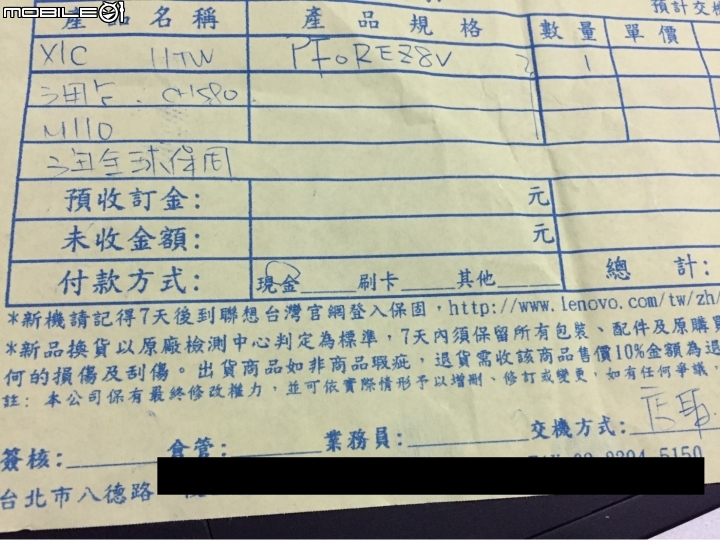 MOBILE01
預計交機
產品名稱 產品規格 數量 單價
X1C 11TW PF0REZ8V 1
M110
全球保固
預收訂金: 元
未收金額: 元
付款方式: 現金____刷卡____其他____ 總計:
*新機請記得7天後到聯想台灣官網登入保固,http://www.lenovo.com/tw/zh/
*新品換貨以原廠檢測中心判定為標準,7天內須保留所有包裝、配件及原購買
何的損傷及刮傷。出貨商品如非商品瑕疵,退貨需收該商品售價10%金額為退
註: 本公司保有最終修改權力,並可依實際情形予以增刪、修訂或變更,如有任何爭議,
簽核:____倉管:____業務員:____交機方式:
台北市八德路